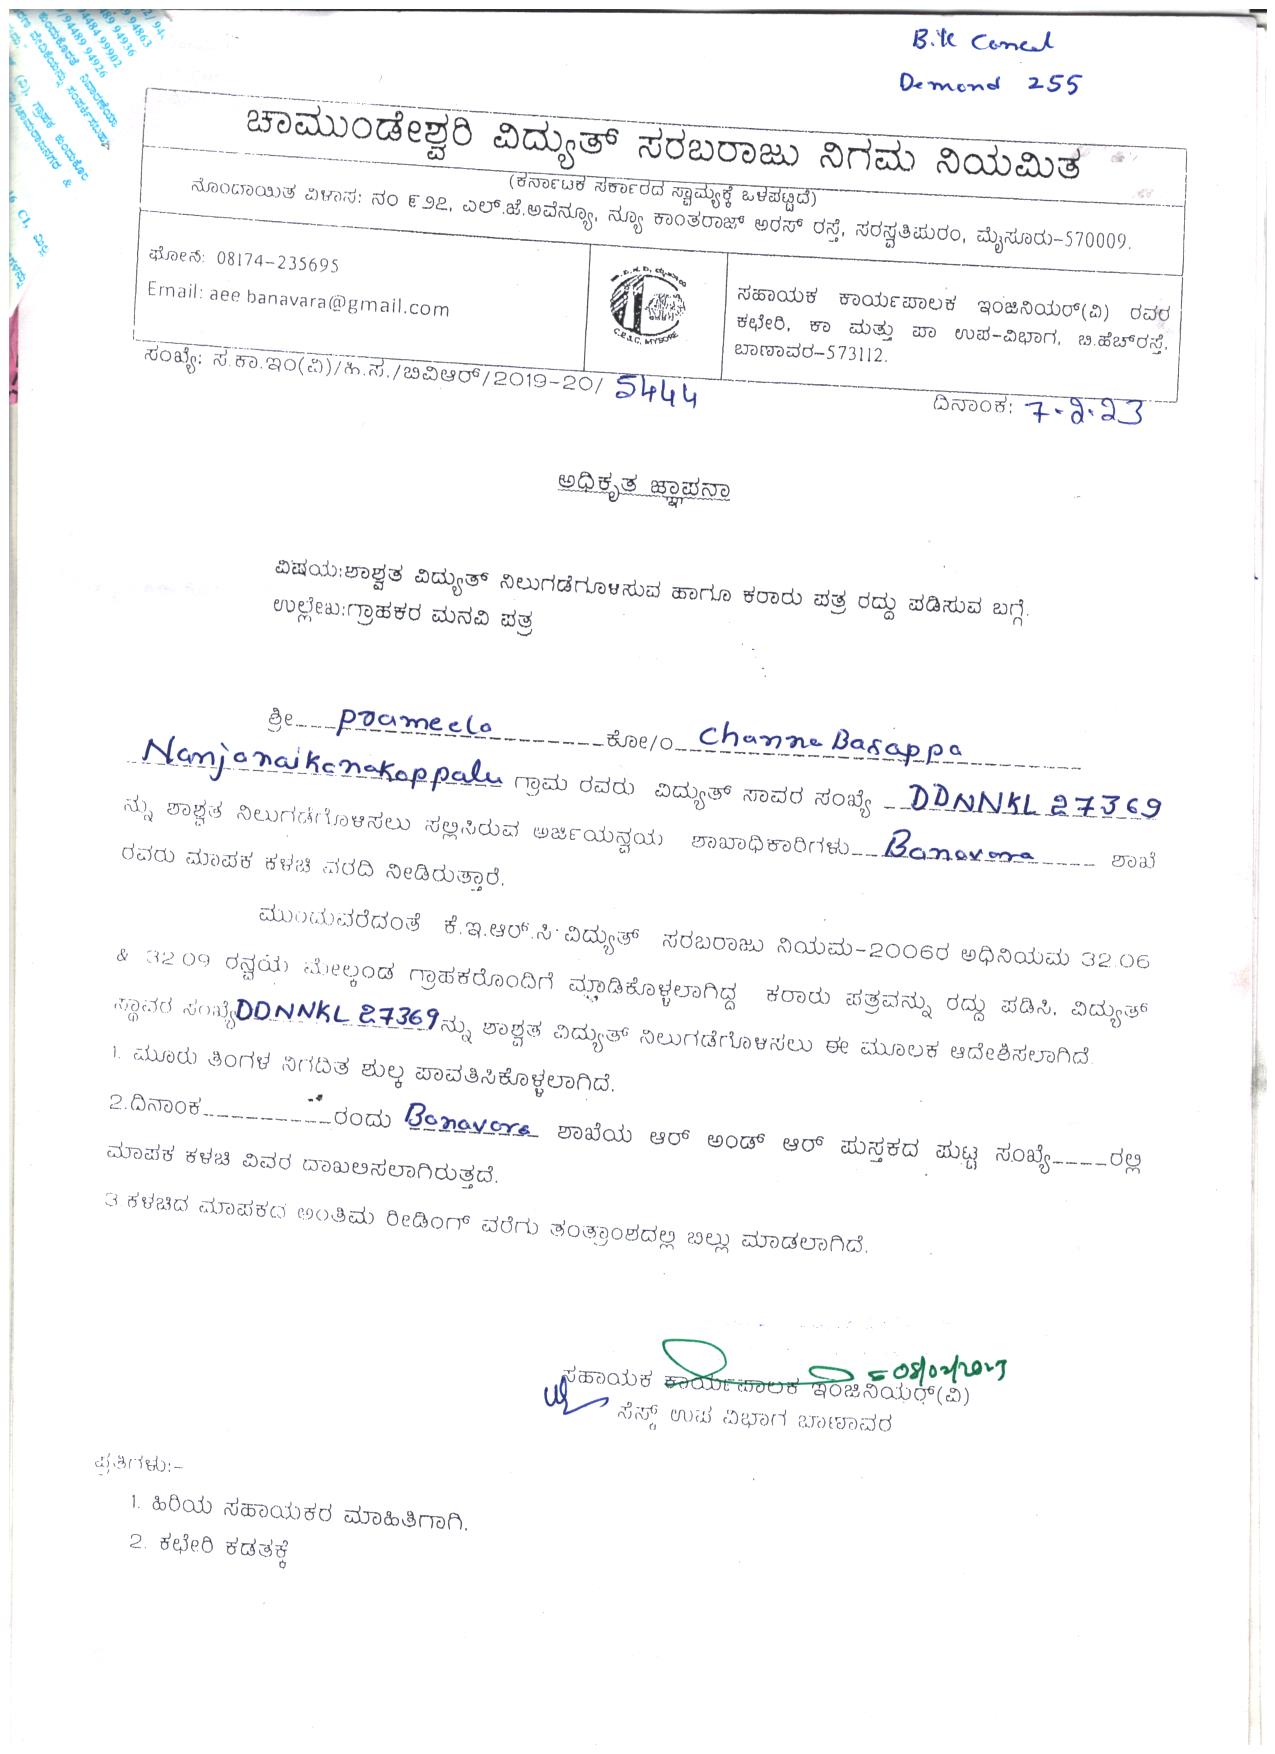 B.K Cancel
Demond 255
ಚಾಮುಂಡೇಶ್ವರಿ ವಿದ್ಯುತ್ ಸರಬರಾಜು ನಿಗಮ ನಿಯಮಿತ
(ಕರ್ನಾಟಕ ಸರ್ಕಾರದ ಸ್ವಾಮ್ಯಕ್ಕೆ ಒಳಪಟ್ಟಿದೆ)
ನೊಂದಾಯಿತ ವಿಳಾಸ: ನಂ ೯೨೭, ಎಲ್.ಜೆ.ಅವೆನ್ಯೂ, ನ್ಯೂ ಕಾಂತರಾಜ್ ಅರಸ್ ರಸ್ತೆ, ಸರಸ್ವತಿಪುರಂ, ಮೈಸೂರು-570009.
ಫೋನ: 08174-235695
Email: aee banavara@gmail.com
C.E.S.C, MYSORE
ಸಹಾಯಕ ಕಾರ್ಯಪಾಲಕ ಇಂಜಿನಿಯರ್(ವಿ) ರವರ
ಕಛೇರಿ, ಕಾ ಮತ್ತು ಪಾ ಉಪ-ವಿಭಾಗ, ಬಿ.ಹೆಚ್‌ರಸ್ತೆ,
ಬಾಣಾವರ-573112.
ಸಂಖ್ಯೆ: ಸ.ಕಾ.ಇಂ(ವಿ)/ಹಿ.ಸ./ಬಿವಿಆರ್/2019-20/ 5444
ದಿನಾಂಕ: 7-2-23
ಅಧಿಕೃತ ಜ್ಞಾಪನಾ
ವಿಷಯ:ಶಾಶ್ವತ ವಿದ್ಯುತ್ ನಿಲುಗಡೆಗೊಳಿಸುವ ಹಾಗೂ ಕರಾರು ಪತ್ರ ರದ್ದು ಪಡಿಸುವ ಬಗ್ಗೆ.
ಉಲ್ಲೇಖ:ಗ್ರಾಹಕರ ಮನವಿ ಪತ್ರ
ಶ್ರೀ____Prameela________ಕೋ/o__Channa Basappa________
Nanjanaikanakoppalu ಗ್ರಾಮ ರವರು ವಿದ್ಯುತ್ ಸಾವರ ಸಂಖ್ಯೆ __DDNNKL 27369
ನ್ನು ಶಾಶ್ವತ ನಿಲುಗಡೆಗೊಳಿಸಲು ಸಲ್ಲಿಸಿರುವ ಅರ್ಜಿಯನ್ವಯ ಶಾಖಾಧಿಕಾರಿಗಳು___Banavara____ ಶಾಖೆ
ರವರು ಮಾಪಕ ಕಳಚಿ ವರದಿ ನೀಡಿರುತ್ತಾರೆ.
ಮುಂದುವರೆದಂತೆ ಕೆ.ಇ.ಆರ್.ಸಿ ವಿದ್ಯುತ್ ಸರಬರಾಜು ನಿಯಮ-2006ರ ಅಧಿನಿಯಮ 32.06
& 32.09 ರನ್ವಯ ಮೇಲ್ಕಂಡ ಗ್ರಾಹಕರೊಂದಿಗೆ ಮ್ಮಾಡಿಕೊಳ್ಳಲಾಗಿದ್ದ ಕರಾರು ಪತ್ರವನ್ನು ರದ್ದು ಪಡಿಸಿ, ವಿದ್ಯುತ್
ಸ್ಥಾವರ ಸಂಖ್ಯೆDDNNKL 27369ನ್ನು ಶಾಶ್ವತ ವಿದ್ಯುತ್ ನಿಲುಗಡೆಗೊಳಿಸಲು ಈ ಮೂಲಕ ಆದೇಶಿಸಲಾಗಿದೆ.
1. ಮೂರು ತಿಂಗಳ ನಿಗದಿತ ಶುಲ್ಕ ಪಾವತಿಸಿಕೊಳ್ಳಲಾಗಿದೆ.
2.ದಿನಾಂಕ__________ರಂದು Banavara ಶಾಖೆಯ ಆರ್ ಅಂಡ್ ಆರ್ ಪುಸ್ತಕದ ಪುಟ್ಟ ಸಂಖ್ಯೆ____ರಲ್ಲಿ
ಮಾಪಕ ಕಳಚಿ ವಿವರ ದಾಖಲಿಸಲಾಗಿರುತ್ತದೆ.
3 ಕಳಚಿದ ಮಾಪಕದ ಅಂತಿಮ ರೀಡಿಂಗ್ ವರೆಗು ತಂತ್ರಾಂಶದಲ್ಲಿ ಬಿಲ್ಲು ಮಾಡಲಾಗಿದೆ.
08/02/2023
ಸಹಾಯಕ ಕಾರ್ಯಪಾಲಕ ಇಂಜಿನಿಯರ್(ವಿ)
ಸೆಸ್ಕ್ ಉಪ ವಿಭಾಗ ಬಾಣಾವರ
ಪ್ರತಿಗಳು:-
1. ಹಿರಿಯ ಸಹಾಯಕರ ಮಾಹಿತಿಗಾಗಿ.
2. ಕಛೇರಿ ಕಡತಕ್ಕೆ